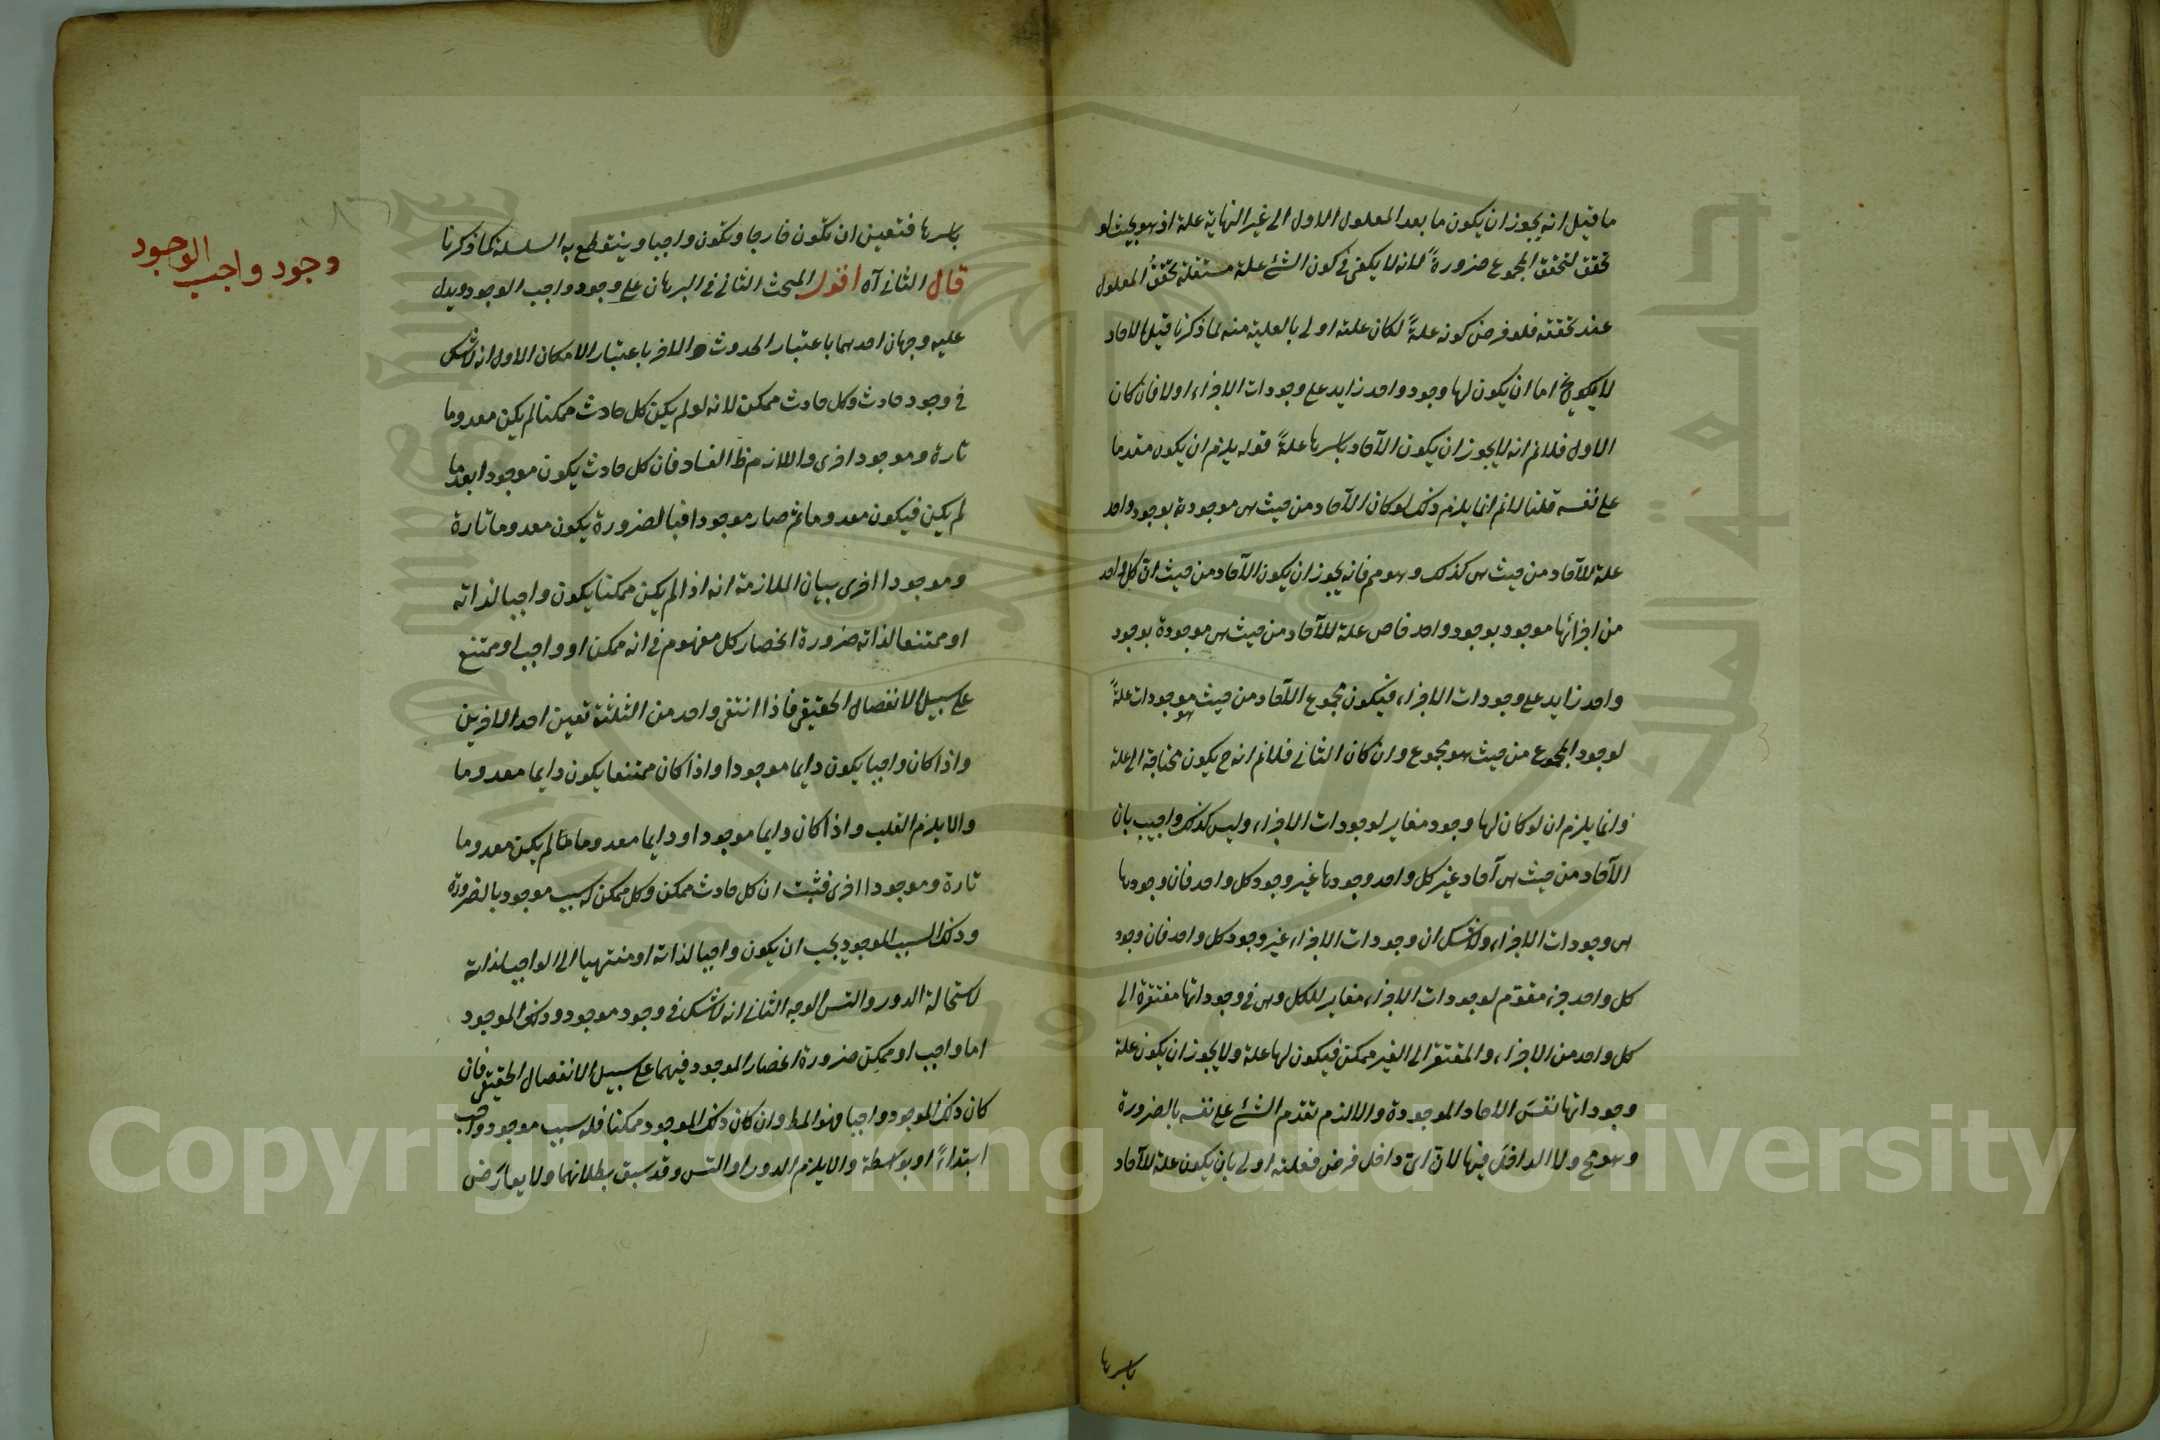 ما قيل انه يجوز ان يكون ما بعد المعلول الاول الى غير النهاية علة اذ هو بحيث لو
تحقق لتحقق المجموع ضرورةً لانه لا يكفي في كون الشئ علة مستقلة تحققُ المعلول
عند تحققه فلو فرض كونه علةً لكان علته اولى بالعلية منه لما ذكرنا قيل الآحاد
لا يخ اما ان يكون لها وجود واحد زايد على وجودات الاجزاء اولا فان كان
الاول فلانم انه لا يجوز ان يكون الآحاد باسرها علةً قوله يلزم ان يكون مقدما
على نفسه قلنا لانم انما يلزم ذلك لو كان الآحاد من حيث هى موجودة بوجود واحد
علة للآحاد من حيث هى كذلك وهو مم فانه يجوز ان يكون الآحاد من حيث ان كل واحد
من اجزائها موجود بوجود واحد خاص علة للآحاد من حيث هى موجودة بوجود
واحد زايد على وجودات الاجزاء فيكون مجموع الآحاد من حيث هو موجودات علةً
لوجود المجموع من حيث هو مجموع وان كان الثانى فلانم انه ح يكون محتاجة الى علة
وانما يلزم ان لو كان لها وجود مغاير لوجودات الاجزاء وليس كذلك واجيب بان
الآحاد من حيث هى آحاد غير كل واحد وجودها غير وجود كل واحد فان وجودها
هى وجودات الاجزاء ولا شك ان وجودات الاجزاء غير وجود كل واحد فان وجود
كل واحد جزء مقوّم لوجودات الاجزاء مغاير للكل وهى فى وجوداتها مفتقرة الى
كل واحد من الاجزاء والمفتقر الى الغير ممكن فيكون لها علة ولا يجوز ان يكون علة
وجوداتها نفسَ الآحاد الموجودة والا لزم تقدم الشئ على نفسه بالضرورة
وهو مح ولا الداخلَ فيها لان اىّ داخل فرض فعلته اولى بان يكون علة للآحاد
باسرها
باسرها فتعين ان تكون خارجا وتكون واجبا وينقطع به السلسلة كما ذكرنا
قال الثانى آه اقول المبحث الثانى فى البرهان على وجود واجب الوجود ويدل
عليه وجهان احدهما باعتبار الحدوث والآخر باعتبار الامكان الاول انه لا شك
فى وجود حادث وكل حادث ممكن لانه لو لم يكن كل حادث ممكنا لم يكن معدوما
تارة وموجودا اخرى واللازم ظ الفساد فان كل حادث يكون موجودا بعد ما
لم يكن فيكون معدوما ثم صار موجودا فبالضرورة يكون معدوما تارة
وموجودا اخرى بيان الملازمة انه اذا لم يكن ممكنا يكون واجبا لذاته
او ممتنعا لذاته ضرورة انحصار كل مفهوم فى انه ممكن او واجب او ممتنع
على سبيل الانفصال الحقيقى فاذا انتفى واحد من الثلثة تعين احد الآخرين
واذا كان واجبا يكون دايما موجودا واذا كان ممتنعا يكون دايما معدوما
والا يلزم القلب واذا كان دايما موجودا او دايما معدوما لم يكن معدوما
تارة وموجودا اخرى فثبت ان كل حادث ممكن وكل ممكن له سبب موجود بالضرورة
وذلك السبب الموجود يجب ان يكون واجبا لذاته او منتهيا الى الواجب لذاته
لاستحالة الدور والتس الوجه الثانى انه لا شك فى وجود موجود وذلك الموجود
اما واجب او ممكن ضرورة انحصار الموجود فيهما على سبيل الانفصال الحقيقى فان
كان ذلك الموجود واجبا فهو المط وان كان ذلك الموجود ممكنا فله سبب موجود واجب
ابتداءً او بواسطة والا يلزم الدور او التس وقد سبق بطلانهما ولا يعارَض
وجود واجب الوجود
Copyright © King Saud University